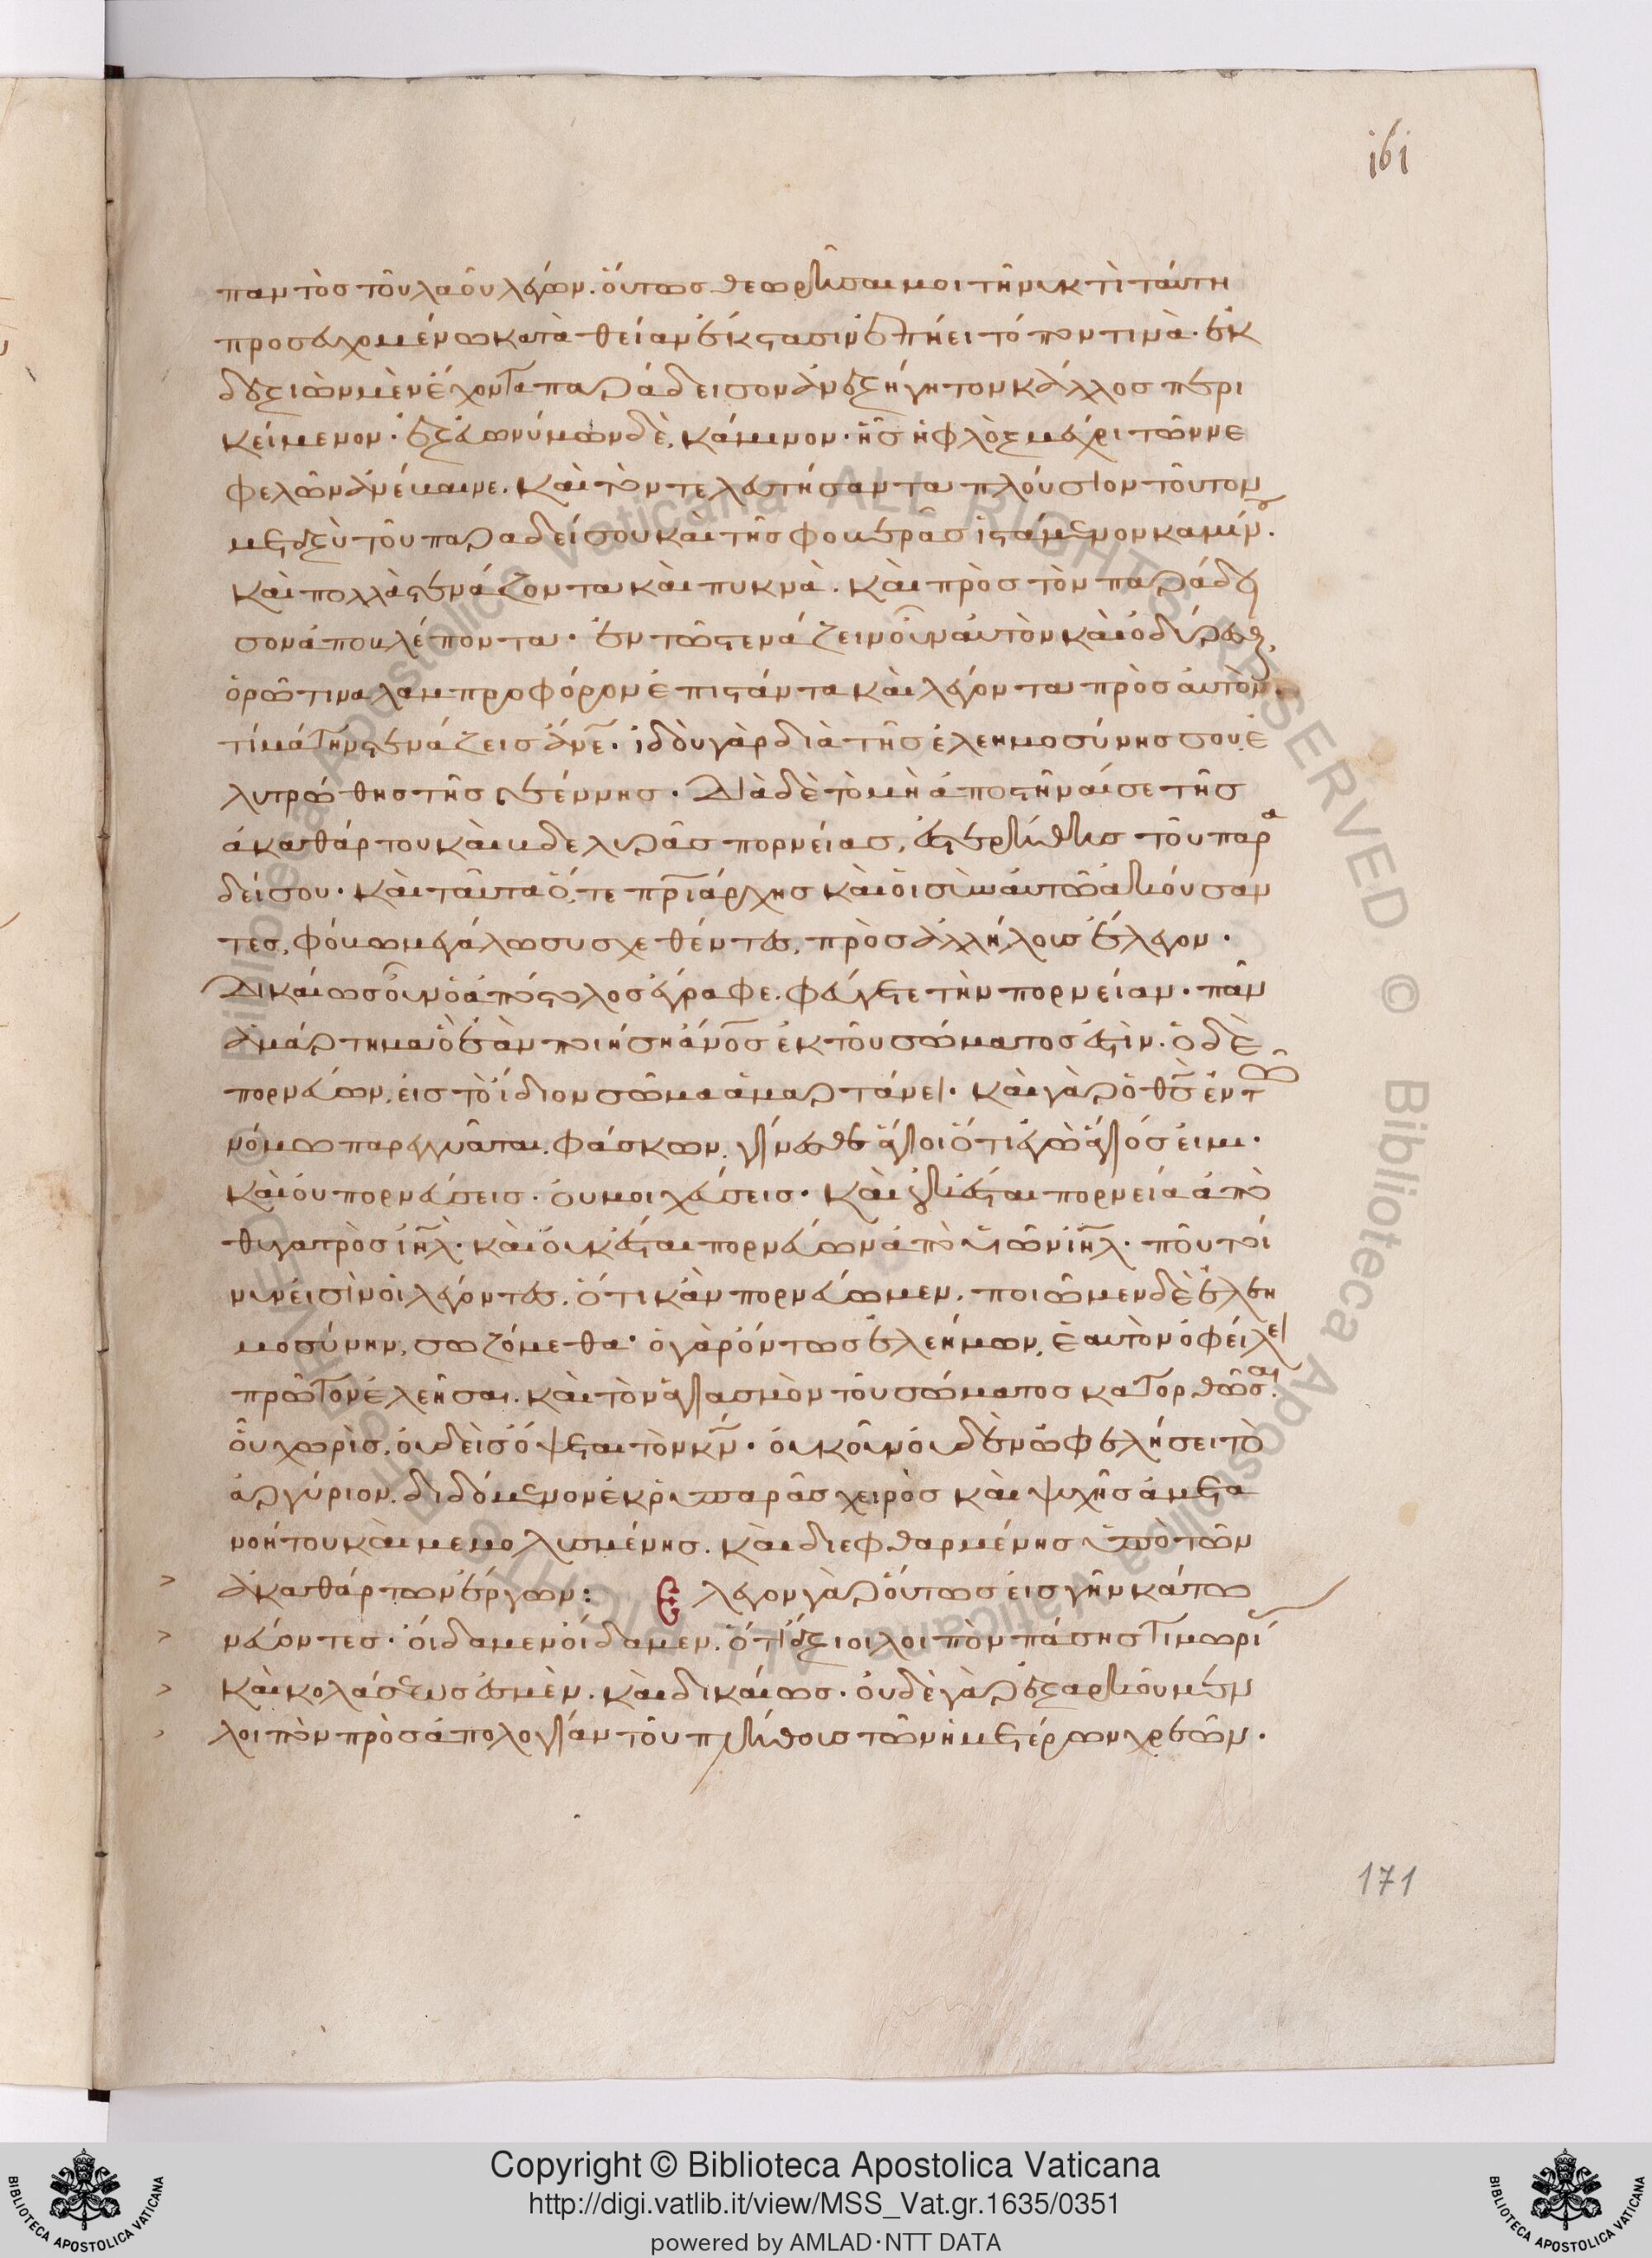 161
παντὸς τοῦ λαοῦ λέγων. οὕτως θεωρῆσαί μοι τῆ νυκτὶ ταύτη
προσευχομένω κατὰ θείαν ἔκστασιν ἐπήει τόπον τινὰ. ἐκ
δεξιῶν μὲν ἔχοντα παράδεισον ἀνεξήγητον κάλλος περι
κείμενον. ἐξ εὐωνύμων δὲ, κάμινον. ἧς ἡ φλὸξ μέχρι τῶν νε
φελῶν ἀνέβαινε. καὶ τὸν τελευτήσαντα πλούσιον τοῦτον
μεταξὺ τοῦ παραδείσου καὶ τῆς φοβερᾶς ἱστάμενον καμίνου.
καὶ πολλὰ στενάζοντα καὶ πυκνὰ. καὶ πρὸς τὸν παράδει
σον ἀποβλέποντα. ἐν τῶ στενάζειν οὖν αὐτὸν καὶ ὀδύρεσθαι,
ὁρῶ τινα λαμπροφόρον ἐπιστάντα καὶ λέγοντα πρὸς αὐτὸν.
τί μάτην στενάζεις ἄνε. ἰδοὺ γὰρ διὰ τῆς ἐλεημοσύνης σου, ἐ
λυτρώθης τῆς γεέννης. Διὰ δὲ τὸ μὴ ἀποστῆναί σε τῆς
ἀκαθάρτου καὶ βδελυρᾶς πορνείας, ἐστερήθης τοῦ παρα
δείσου. καὶ ταῦτα ὅ, τε πριάρχης καὶ οἱ σὺν αὐτῶ ἀκούσαν
τες, φόβω μεγάλω συσχεθέντες, πρὸς ἀλλήλους ἔλεγον.
Δικαίως οὖν ὁ ἀπόστολος ἔγραφε. φεύγετε τὴν πορνείαν. πᾶν
ἁμάρτημα ὃ ἐὰν ποιήση ἄνος ἐκτοῦ σώματος ἐστὶν. ὁ δὲ
πορνεύων, εἰς τὸ ἴδιον σῶμα ἁμαρτάνει. καὶ γὰρ ὁ θς ἐν τῶ
νόμω παρεγγυᾶται. φάσκων. γίνεσθε ἅγιοι ὅτι ἐγὼ ἅγιός εἰμι.
καὶ οὐ πορνεύσεις. οὐ μοιχεύσεις. καὶ οὐκ ἔσται πορνεία ἀπὸ
θυγατρὸς ιηλ. καὶ οὐκ ἔσται πορνεύων ἀπὸ υἱῶν ιηλ. ποῦ τοί
νυν εἰσὶν οἱ λέγοντες. ὅτι κἂν πορνεύωμεν. ποιῶμεν δὲ ἐλεη
μοσύνην, σωζόμεθα. ὁ γὰρ ὄντως ἐλεήμων, ἑαυτὸν ὀφείλει
πρῶτον ἐλεῆσαι. καὶ τὸν ἁγιασμὸν τοῦ σώματος κατορθῶσαι.
οὗ χωρὶς. οὐδεὶς ὄψεται τὸν κν. οὐκοῦν οὐδὲν ὠφελήσει τὸ
ἀργύριον. διδόμενον ἐκ ρυπαρᾶς χειρὸς καὶ ψυχῆς ἀμετα
νοήτου καὶ μεμολυσμένης. καὶ διεφθαρμένης ὑπὸ τῶν
ἀκαθάρτων ἔργων: Ἔλεγον γὰρ οὕτως εἰς γῆν κάτω
νεύοντες. οἴδαμεν οἴδαμεν. ὅτι ἄξιοι λοιπὸν πάσης τιμωρίας
καὶ κολάσεως ἐσμὲν. καὶ δικαίως. οὐδὲ γὰρ ἐξαρκοῦμεν
λοιπὸν πρὸς ἀπολογίαν τοῦ πλήθους τῶν ἡμετέρων χρεῶν.
171
Copyright © Biblioteca Apostolica Vaticana
http://digi.vatlib.it/view/MSS_Vat.gr.1635/0351
powered by AMLAD·NTT DATA